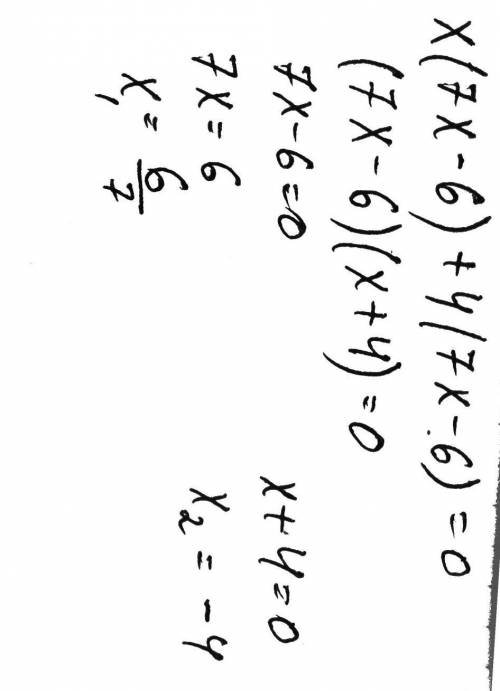 x(7x-6)+4(7x-6)=0
(7x-6)(x+4)=0
7x-6=0 x+4=0
7x=6 x₂=-4
x₁=6/7